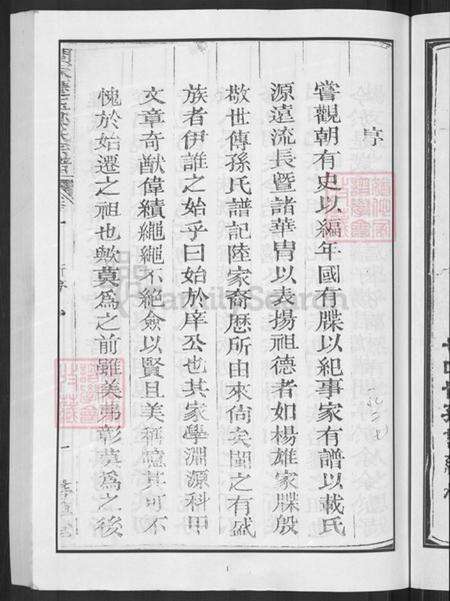 序
嘗觀朝有史以編年國有牒以紀事家有譜以載氏
源遠流長暨諸華胄以表揚祖德者如楊雄家牒殷
敬世傳孫氏譜記陸家裔歷所由來尚矣閩之有盛
族者伊誰之始乎曰始於庠公也其家學淵源科甲
文章奇猷偉績繩繩不絕僉以賢且美稱噫其可不
愧於始遷之祖也歟莫為之前雖美弗彰莫為之後
FamilySearch
一
1